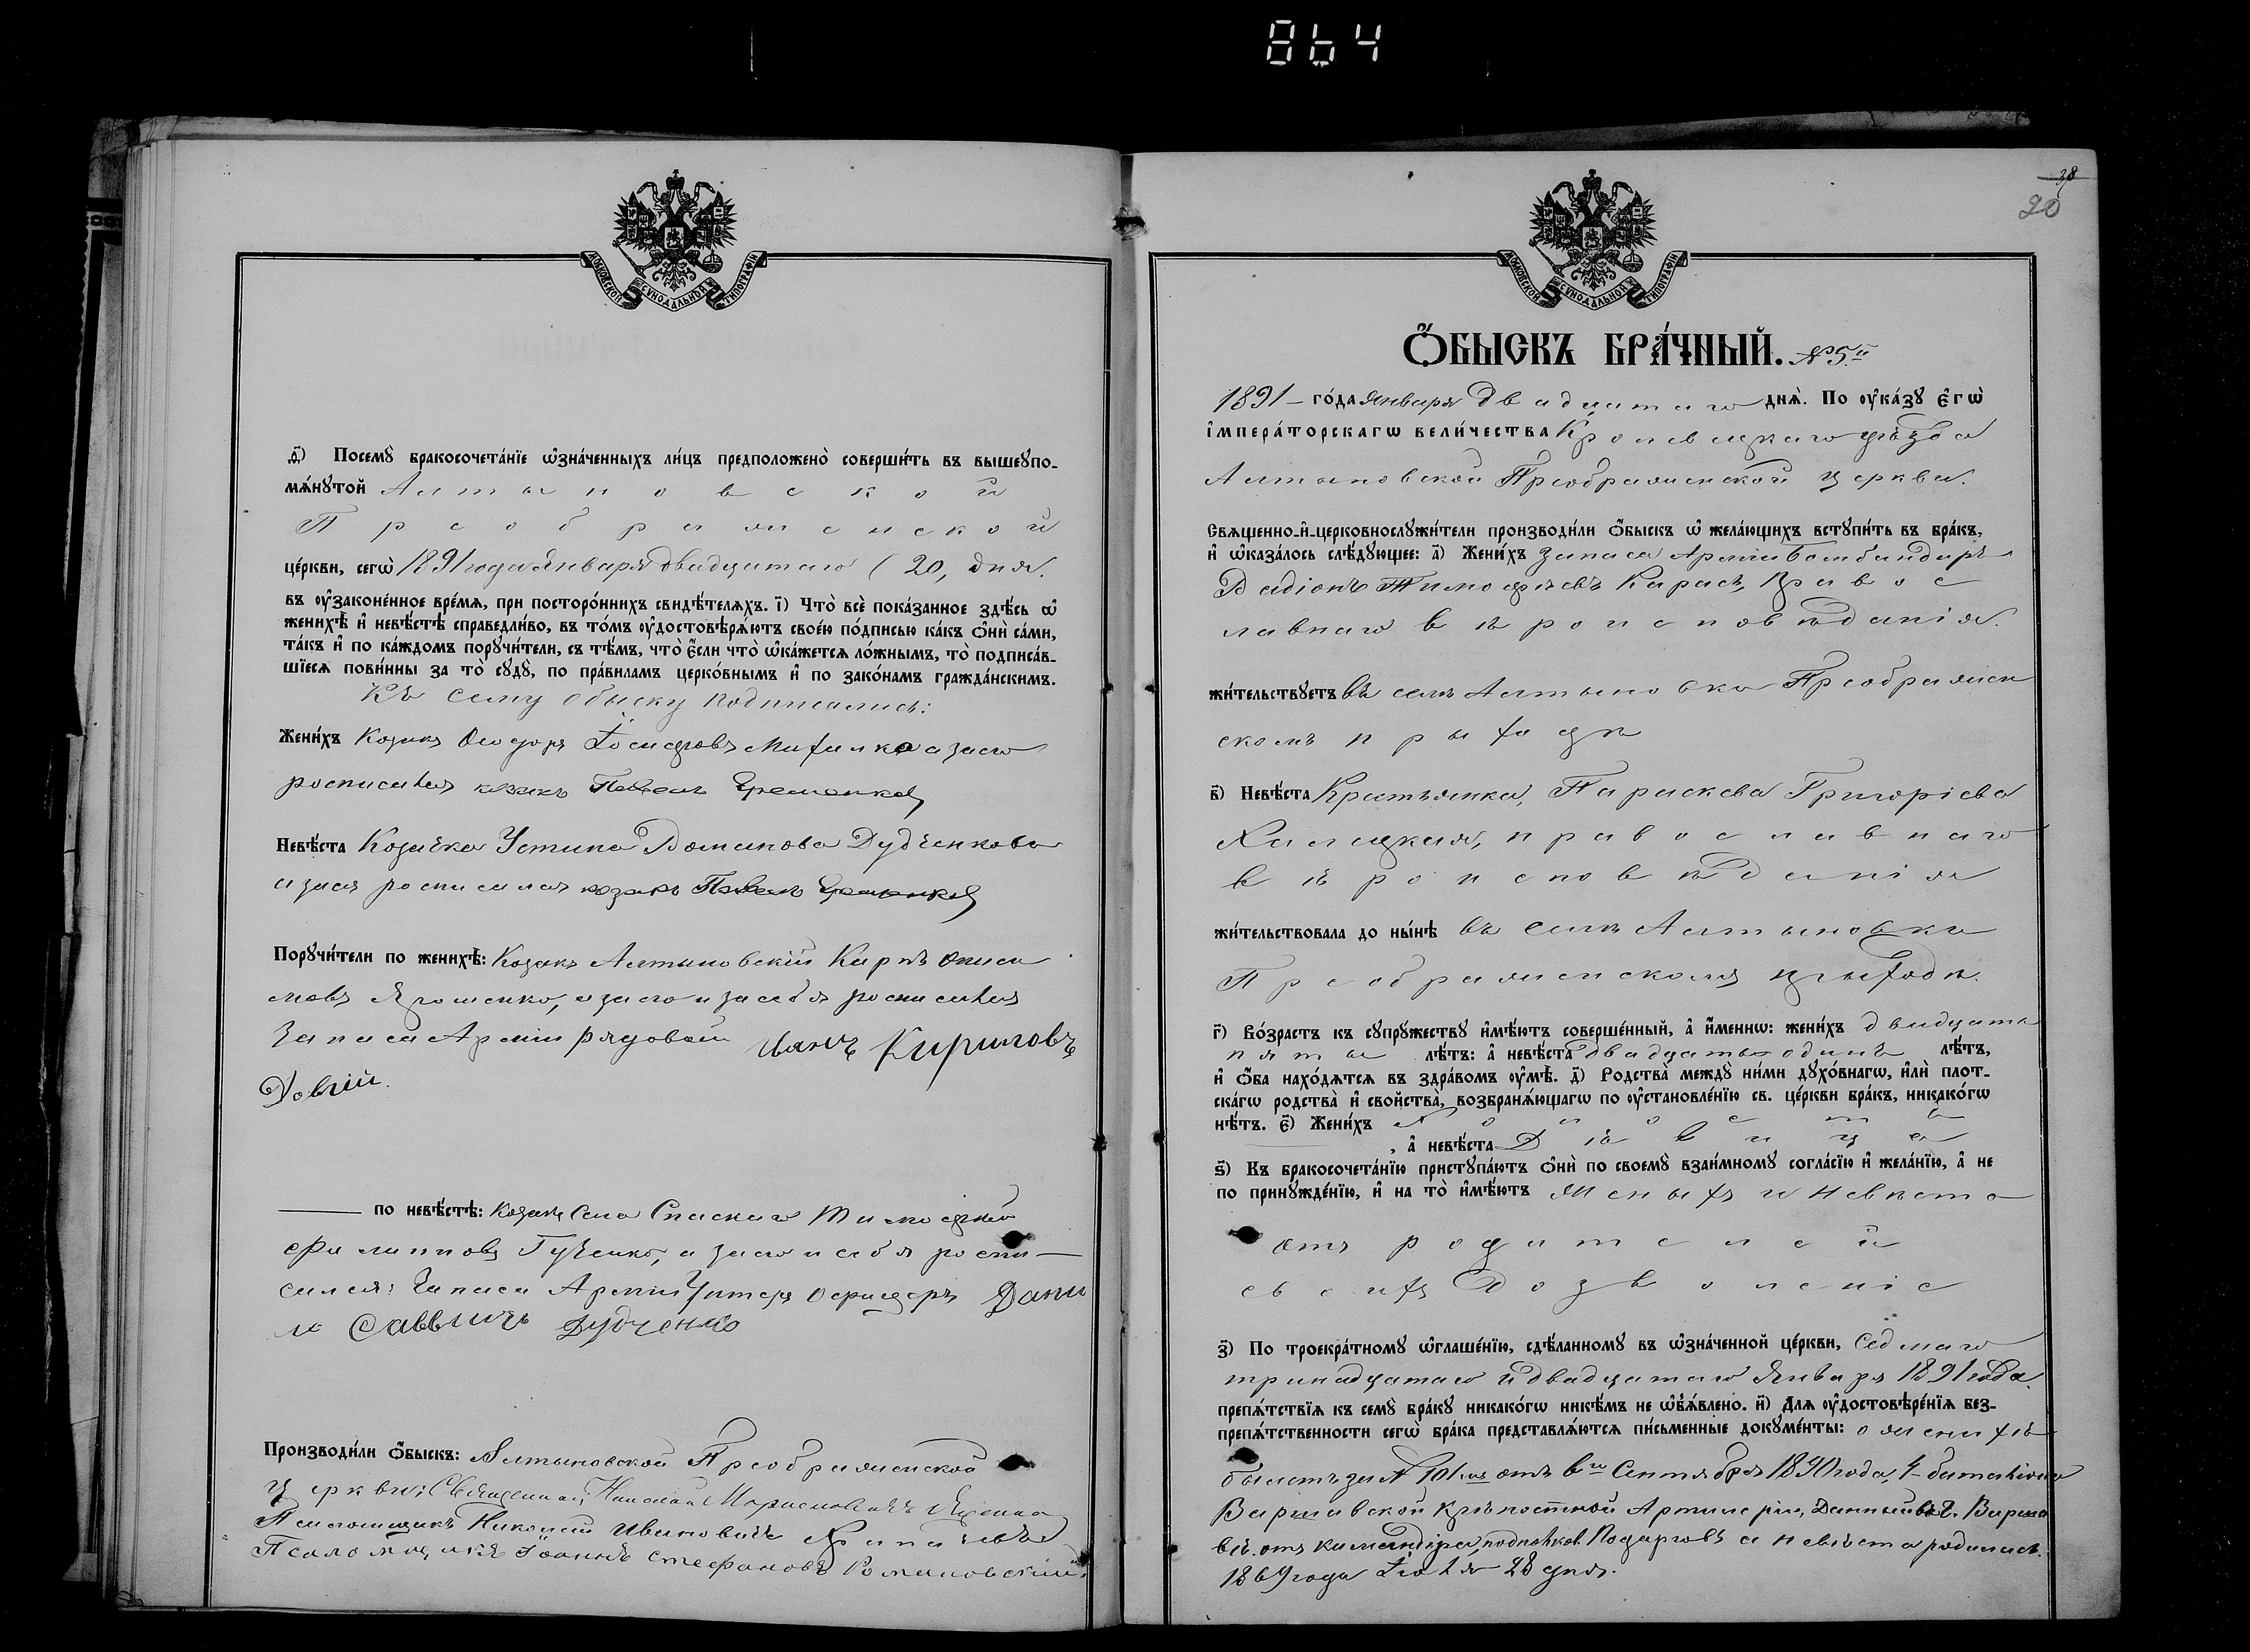 864
МОСКОВСКОЙ СѴНОДАЛЬНОЙ ТИПОГРАФІИ
ѳ҃) Посемꙋ̀ бракосочета́нїе ѡ҆зна́ченныхъ ли́цъ предположено̀ соверши́ть въ вышеꙋпо-
мѧ́нꙋтой Алтыновской
Преображенской
це́ркви, сегѡ̀ 1891 года Января двадцатаго (20, дня.
въ ᲂу҆законе́нное вре́мѧ, при посторо́ннихъ свидѣ́телѧхъ. і҃) Что̀ всѐ пока́занное здѣ́сь ѡ҆
женихѣ̀ и҆ невѣ́стѣ справедли́во, въ то́мъ ᲂу҆достовѣрѧ́ютъ свое́ю по́дписью ка́къ ѻ҆нѝ са́ми,
та́къ и҆ по ка́ждомъ порꙋчи́тели, съ тѣ́мъ, что̀ є҆́сли что̀ ѡ҆ка́жетсѧ ло́жнымъ, то̀ подписа́в-
шїесѧ пови́нны за то̀ сꙋдꙋ̀, по пра́виламъ церко́внымъ и҆ по зако́намъ гражда́нскимъ.
Къ сему обыску подписались:
Жени́хъ Козакъ Ѳеодоръ Іосифовъ Михалко а заего
росписался козакъ Павелъ Еременко
Невѣ́ста Козачка Устина Романова Дудченкова
а зася росписался козакъ Павелъ Еременко
Порꙋчи́тели по женихѣ̀: Козакъ Алтыновскій Карпъ Ониси
мовъ Ярошенко, а заего и засебя росписался
Запаса Арміи рядовой Иванъ Кириловъ
Довгій.
по невѣ́стѣ: Козакъ Села Спаскаго Тимофей
Филиповъ Гученко, а заего и себя роспи-
сался: Запаса Арміи Унтеръ Офицеръ Дани
ло Саввичъ Дудченко
Производи́ли ѻ҆́быскъ: Алтыновской Преображенской
Церкви: Священникъ Николай
Псаломщикъ Николай Ивановичъ
Псаломщикъ Іоаннъ Стефановъ Романовскій.
38
20
МОСКОВСКОЙ СѴНОДАЛЬНОЙ ТИПОГРАФІИ
Ѻ҆́БЫСКЪ БРА́ЧНЫЙ. № 5й
1891 – го́да Января двадцатаго днѧ̀. По ᲂу҆ка́зꙋ є҆гѡ̀
і҆мпера́торскагѡ вели́чества Кролевецкаго уѣзда
Алтыновской Преображенской церкви.
Сващенно-и҆-церковнослꙋжи́тели производи́ли ѻ҆́быскъ ѡ҆ жела́ющихъ встꙋпи́ть въ бра́къ,
и҆ ѡ҆каза́лось слѣ́дꙋющее: а҃) Жени́хъ запаса Арміи Бомбандиръ
Радіонъ Тимофѣевъ Карась, Правос
лавнаго вѣроисповѣданія.
жи́тельствꙋетъ въ селѣ Алтыновкѣ Преображен
скомъ приходѣ
в҃) Невѣ́ста Крестьянка, Параскева Григоріева
Халецкая, православнаго
вѣроисповѣданія
жи́тельствовала до ны́нѣ въ селѣ Алтыновкѣ
Преображенскомъ приходѣ.
г҃) Во́зрастъ къ сꙋпрꙋ́жествꙋ и҆мѣ́ютъ соверше́нный, а҆ и҆́менно: жени́хъ двадцать
пять лѣ́тъ: а҆ невѣ́ста двадцать одинъ лѣ́тъ,
и҆ ѻ҆́ба нахо́дѧтсѧ въ здра́вомъ ᲂу҆мѣ̀. д҃) Родства̀ междꙋ̀ ни́ми дꙋхо́внагѡ, и҆лѝ плот-
ска́гѡ родства̀ и҆ сво́йства̀, возбранѧ́ющагѡ по ᲂу҆становле́нїю св. це́ркви бра́къ, никако́гѡ
нѣ́тъ. є҃) Жени́хъ холостъ
, а҆ невѣ́ста Дѣвица
ѕ҃) Къ бракосочета́нїю пристꙋпа́ютъ ѻ҆нѝ по своемꙋ̀ взаи́мномꙋ согла́сїю и҆ жела́нїю, а҆ не
по принꙋжде́нїю, и҆ на то̀ и҆мѣ́ютъ Женихъ и Невѣста
отъ родителей
своихъ дозволеніе
з҃) По троекра́тномꙋ ѡ҆глаше́нїю, сдѣ́ланномꙋ въ ѡ҆зна́ченной це́ркви, седмаго
тринадцатаго и двадцатаго Января 1891 года.
препѧ́тствїѧ къ семꙋ̀ бра́кꙋ никако́гѡ никѣ́мъ не ѡ҆б̾ѧ́влено. и҃) Длѧ ᲂу҆достовѣре́нїѧ без-
препѧ́тственности сегѡ̀ бра́ка представлѧ́ютсѧ пи́сьменные докꙋме́нты: о женихѣ
билетъ за № 101мъ отъ 6го Сентября 1890 года, 4- баталіона
Варшавской крѣпостной Артилеріи, Данный въ г. Варша
вѣ. отъ командира, подполков. а невѣста родилась
1869 года Іюля 28 дня.